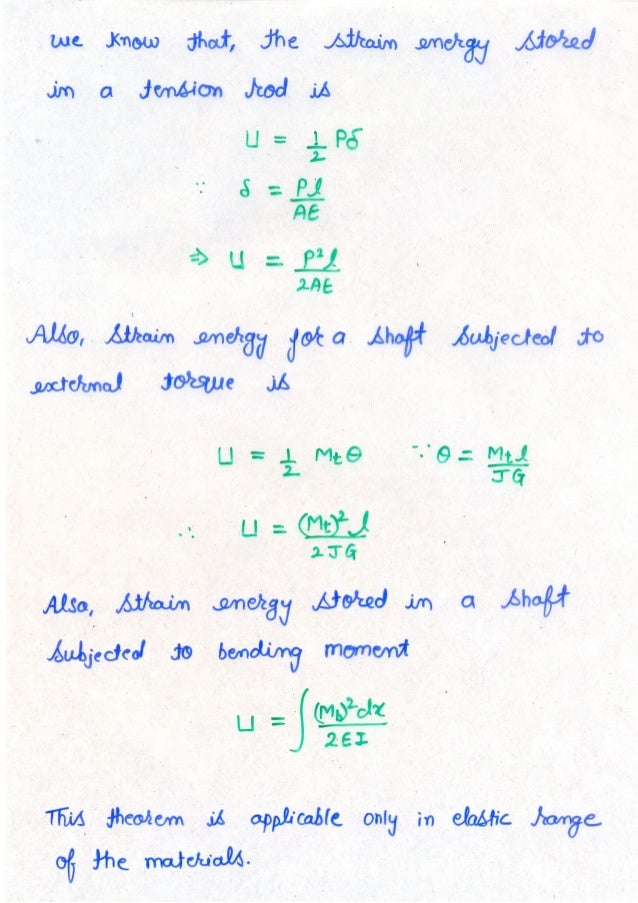 we know that, the strain energy stored
in a tension rod is
U = 1/2 Pδ
∵ δ = Pl/AE
⇒ U = P²l/2AE
Also, Strain energy for a shaft subjected to
external torque is
U = 1/2 Mtθ ∵ θ = Mtl/JG
∴ U = (Mt)²l/2JG
Also, strain energy stored in a shaft
subjected to bending moment
U = ∫(Mb)²dx/2EI
This theorem is applicable only in elastic range
of the materials.